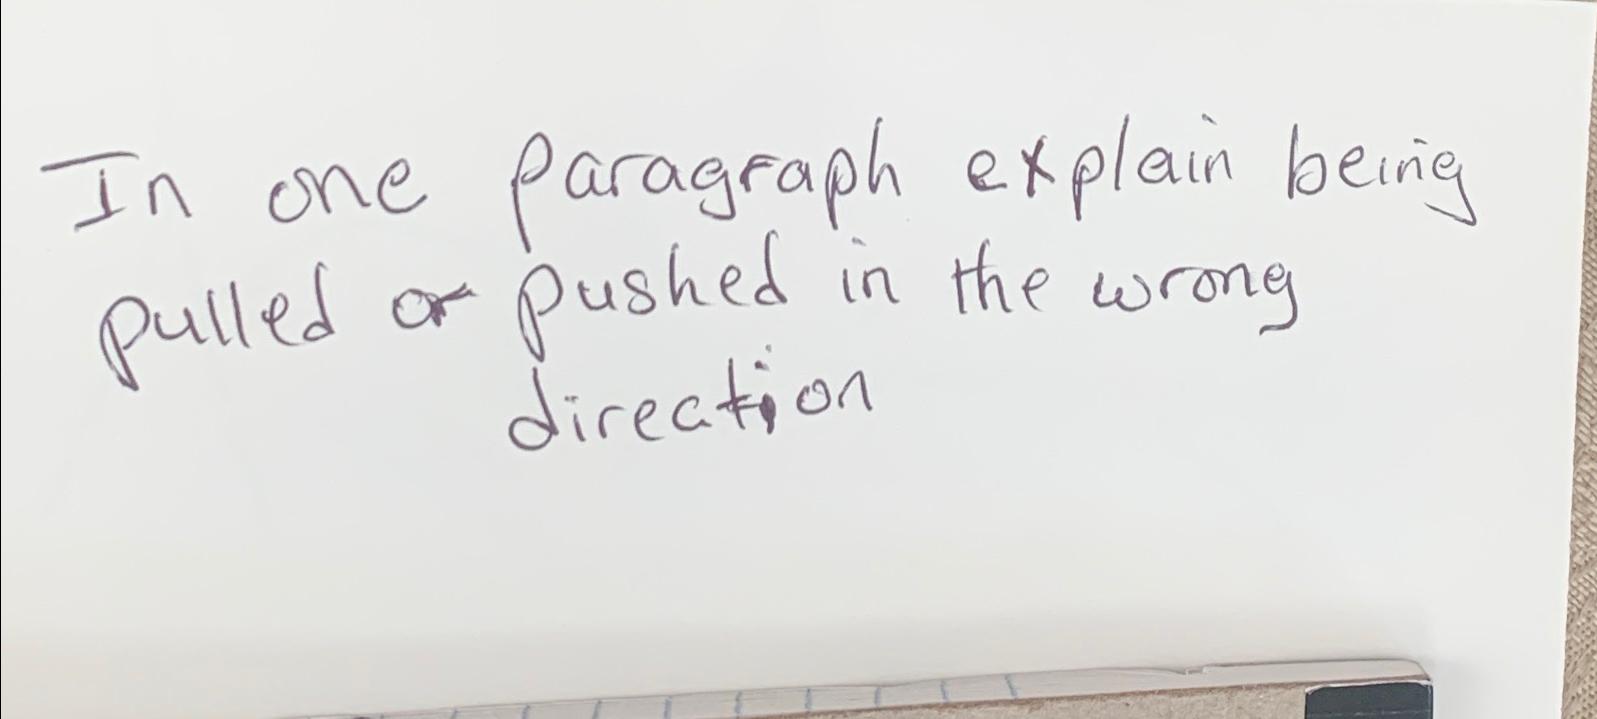 In one paragraph explain being
pulled or pushed in the wrong
direction